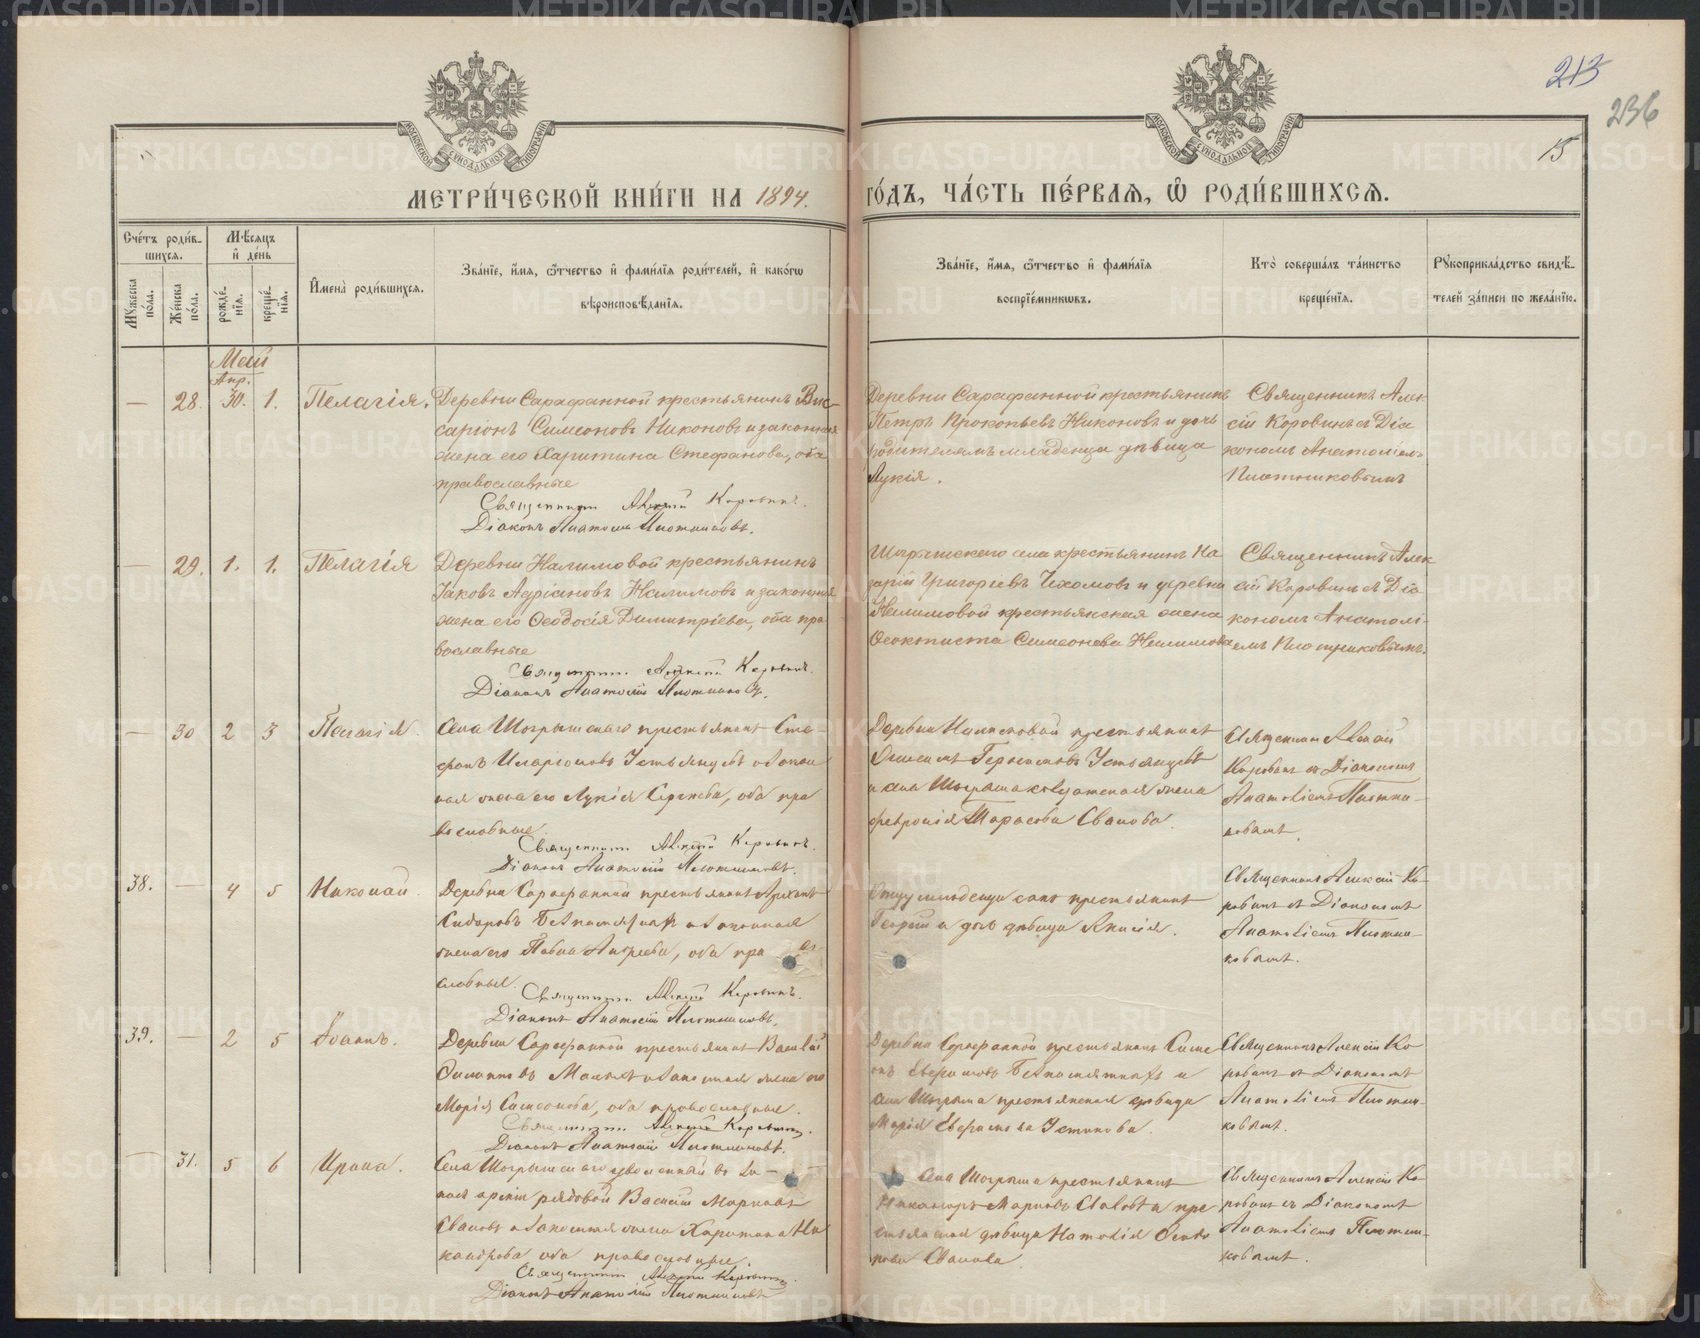 213
236
15
МОСКОВСКОЙ СѴНОДАЛЬНОЙ ТИПОГРАФІИ
МОСКОВСКОЙ СѴНОДАЛЬНОЙ ТИПОГРАФІИ
МЕТРИ́ЧЕСКОЙ КНИ́ГИ НА 1894. ГО́ДЪ, ЧА́СТЬ ПЕ́РВАЯ, Ѡ҆ РОДИ́ВШИХСЯ.
Сче́тъ роди́в-
шихся.
Мѣ́сяцъ
и҆ де́нь
Му́жеска по́ла.
Же́нска по́ла.
рожде́нїя.
креще́нїя.
И҆мена̀ роди́вшихся.
Зва́нїе, и҆́мя, ѻ҆́тчество и҆ фами́лїя роди́телей, и҆ како́гѡ
вѣроисповѣ́данїя.
Зва́нїе, и҆́мя, ѻ҆́тчество и҆ фами́лїя
воспрїе́мникѡвъ.
Кто̀ соверша́лъ та́инство
креще́нїя.
Рꙋкоприкла́дство свидѣ́-
телей за́писи по жела́нїю.
Май
Апр.
— 28. 30. 1. Пелагія.
Деревни Сарафанной крестьянинъ Вис-
саріонъ Симеоновъ Никоновъ и законная
жена его Харитина Стефанова, оба
православные
Священникъ Алексій Коровинъ.
Діаконъ Анатолій Плотниковъ.
Деревни Сарафанной крестьянинъ
Петръ Прокопьевъ Никоновъ и дочь
родителямъ младенца дѣвица
Лукія.
Священникъ Алек
сій Коровинъ съ Діа
кономъ Анатоліем
Плотниковымъ
— 29. 1. 1. Пелагія
Деревни Налимовой крестьянинъ
Іаковъ Адріановъ Налимовъ и законная
жена его Ѳеодосія Димитріева, оба пра
вославные
Священникъ Алексій Коровинъ.
Діаконъ Анатолій Плотниковъ.
Шогришскаго села крестьянинъ На
зарій Григорьевъ Чехомовъ и деревни
Налимовой крестьянская жена
Ѳеоктиста Симеонова Налимова
Священникъ Алек
сій Коровинъ съ Діа
кономъ Анатолі-
емъ Плотниковымъ.
— 30 2 3 Пелагія.
Села Шогрышскаго крестьянинъ Сте-
фанъ Иларіоновъ Устьянцевъ и закон
ная жена его Лукія Сергѣева, оба пра
вославные.
Священникъ Алексій Коровинъ.
Діаконъ Анатолій Плотниковъ.
Деревни Налимовой крестьянинъ
Герасимовъ Устьянцевъ
и села Шогрыша солдатская жена
Февронія Тарасова Сванова.
Священникъ Алексій
Коровинъ съ Діакономъ
Анатоліемъ Плотни-
ковымъ.
38. — 4 5 Николай.
Деревни Сарафанной крестьянинъ
Сидоровъ Безпамятныхъ и законная
жена его Павла Андреева, оба пра вос-
славные.
Священникъ Алексій Коровинъ.
Діаконъ Анатолій Плотниковъ.
Отцу младенца сынъ крестьянинъ
Георгій и дочь дѣвица Анисія.
Священникъ Алексій Ко-
ровинъ съ Діакономъ
Анатоліемъ Плотни-
ковымъ.
39. — 2 5 Іоаннъ.
Деревни Сарафанной крестьянинъ Василій
и законная жена его
Марія Симеонова, оба православные.
Священникъ Алексій Коровинъ.
Діаконъ Анатолій Плотниковъ.
Деревни Сарафанной крестьянинъ Симе
онъ Безпамятныхъ и
села Шогрыша крестьянская дѣвица
Марія Устинова.
Священникъ Алексій Ко
ровинъ съ Діакономъ
Анатоліемъ Плотни-
ковымъ.
— 31. 5 6 Ирина.
Села Шогрышскаго уволенный въ за-
пасъ арміи рядовой Василій Марковъ
Свановъ и законная жена Харитина Ни
кандрова оба православные.
Священникъ Алексій Коровинъ.
Діаконъ Анатолій Плотниковъ
Села Шогрыша крестьянинъ
Никаноръ Марковъ Свановъ и кре
стьянская дѣвица Наталія
Сванова.
Священникъ Алексій Ко
ровинъ съ Діакономъ
Анатоліемъ Плотни-
ковымъ.
METRIKI.GASO-URAL.RU